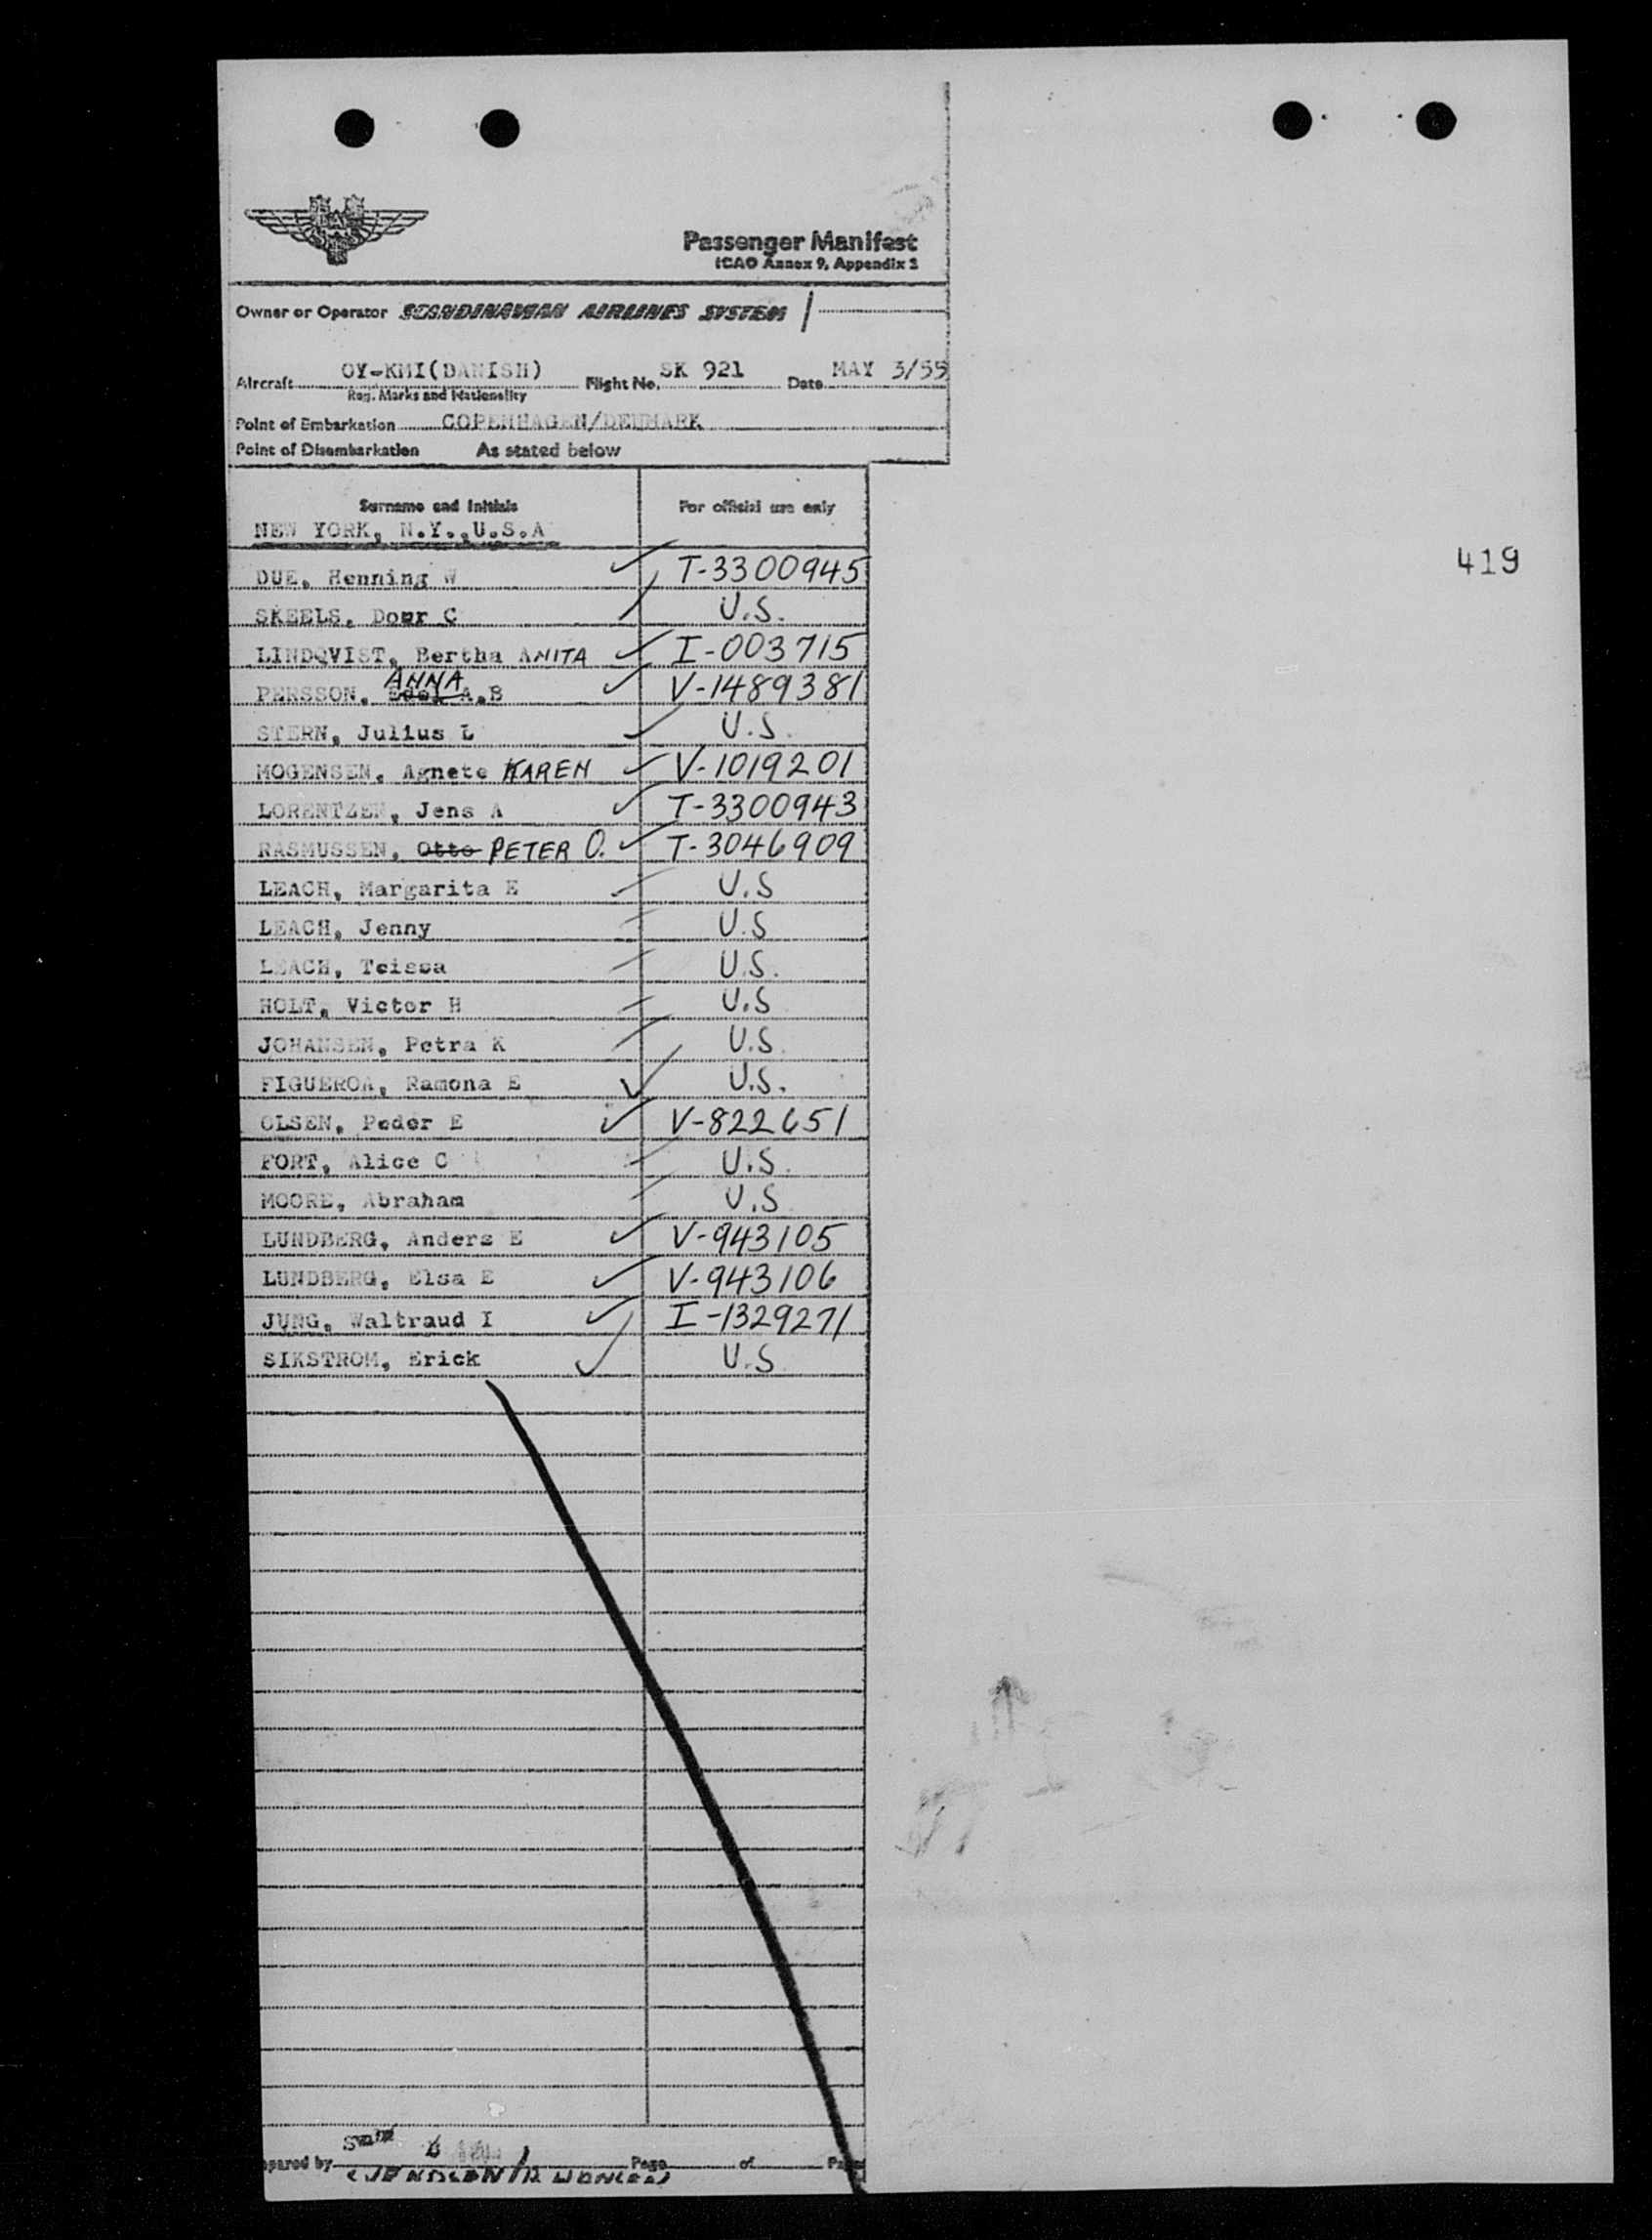 Passenger Manifest
ICAO Annex 9, Appendix 3
Owner or Operator SCANDINAVIAN AIRLINES SYSTEM
Aircraft OY-KMI(DANISH) Flight No. SK 921 Date MAY 3/55
Reg. Marks and Nationality
Point of Embarkation COPENHAGEN/DENMARK
Point of Disembarkation As stated below
Surname and Initials For official use only
NEW YORK, N.Y.,U.S.A
419
DUE, Henning W T-3300945
SKEELS, Dour C U.S.
LINDQVIST, Bertha ANITA I-003715
ANNA
PERSSON, Edel A.B V-1489381
STERN, Julius L U.S.
MOGENSEN, Agnete KAREN V-1019201
LORENTZEN, Jens A T-3300943
RASMUSSEN, Otto PETER O. T-3046909
LEACH, Margarita E U.S
LEACH, Jenny U.S
LEACH, Teissa U.S.
HOLT, Victor H U.S
JOHANSEN, Petra K U.S.
FIGUEROA, Ramona E U.S.
OLSEN, Peder E V-822651
FORT, Alice C U.S.
MOORE, Abraham U.S
LUNDBERG, Anders E V-943105
LUNDBERG, Elsa E V-943106
JUNG, Waltraud I I-1329271
SIKSTROM, Erick U.S
epared by Page of Pages